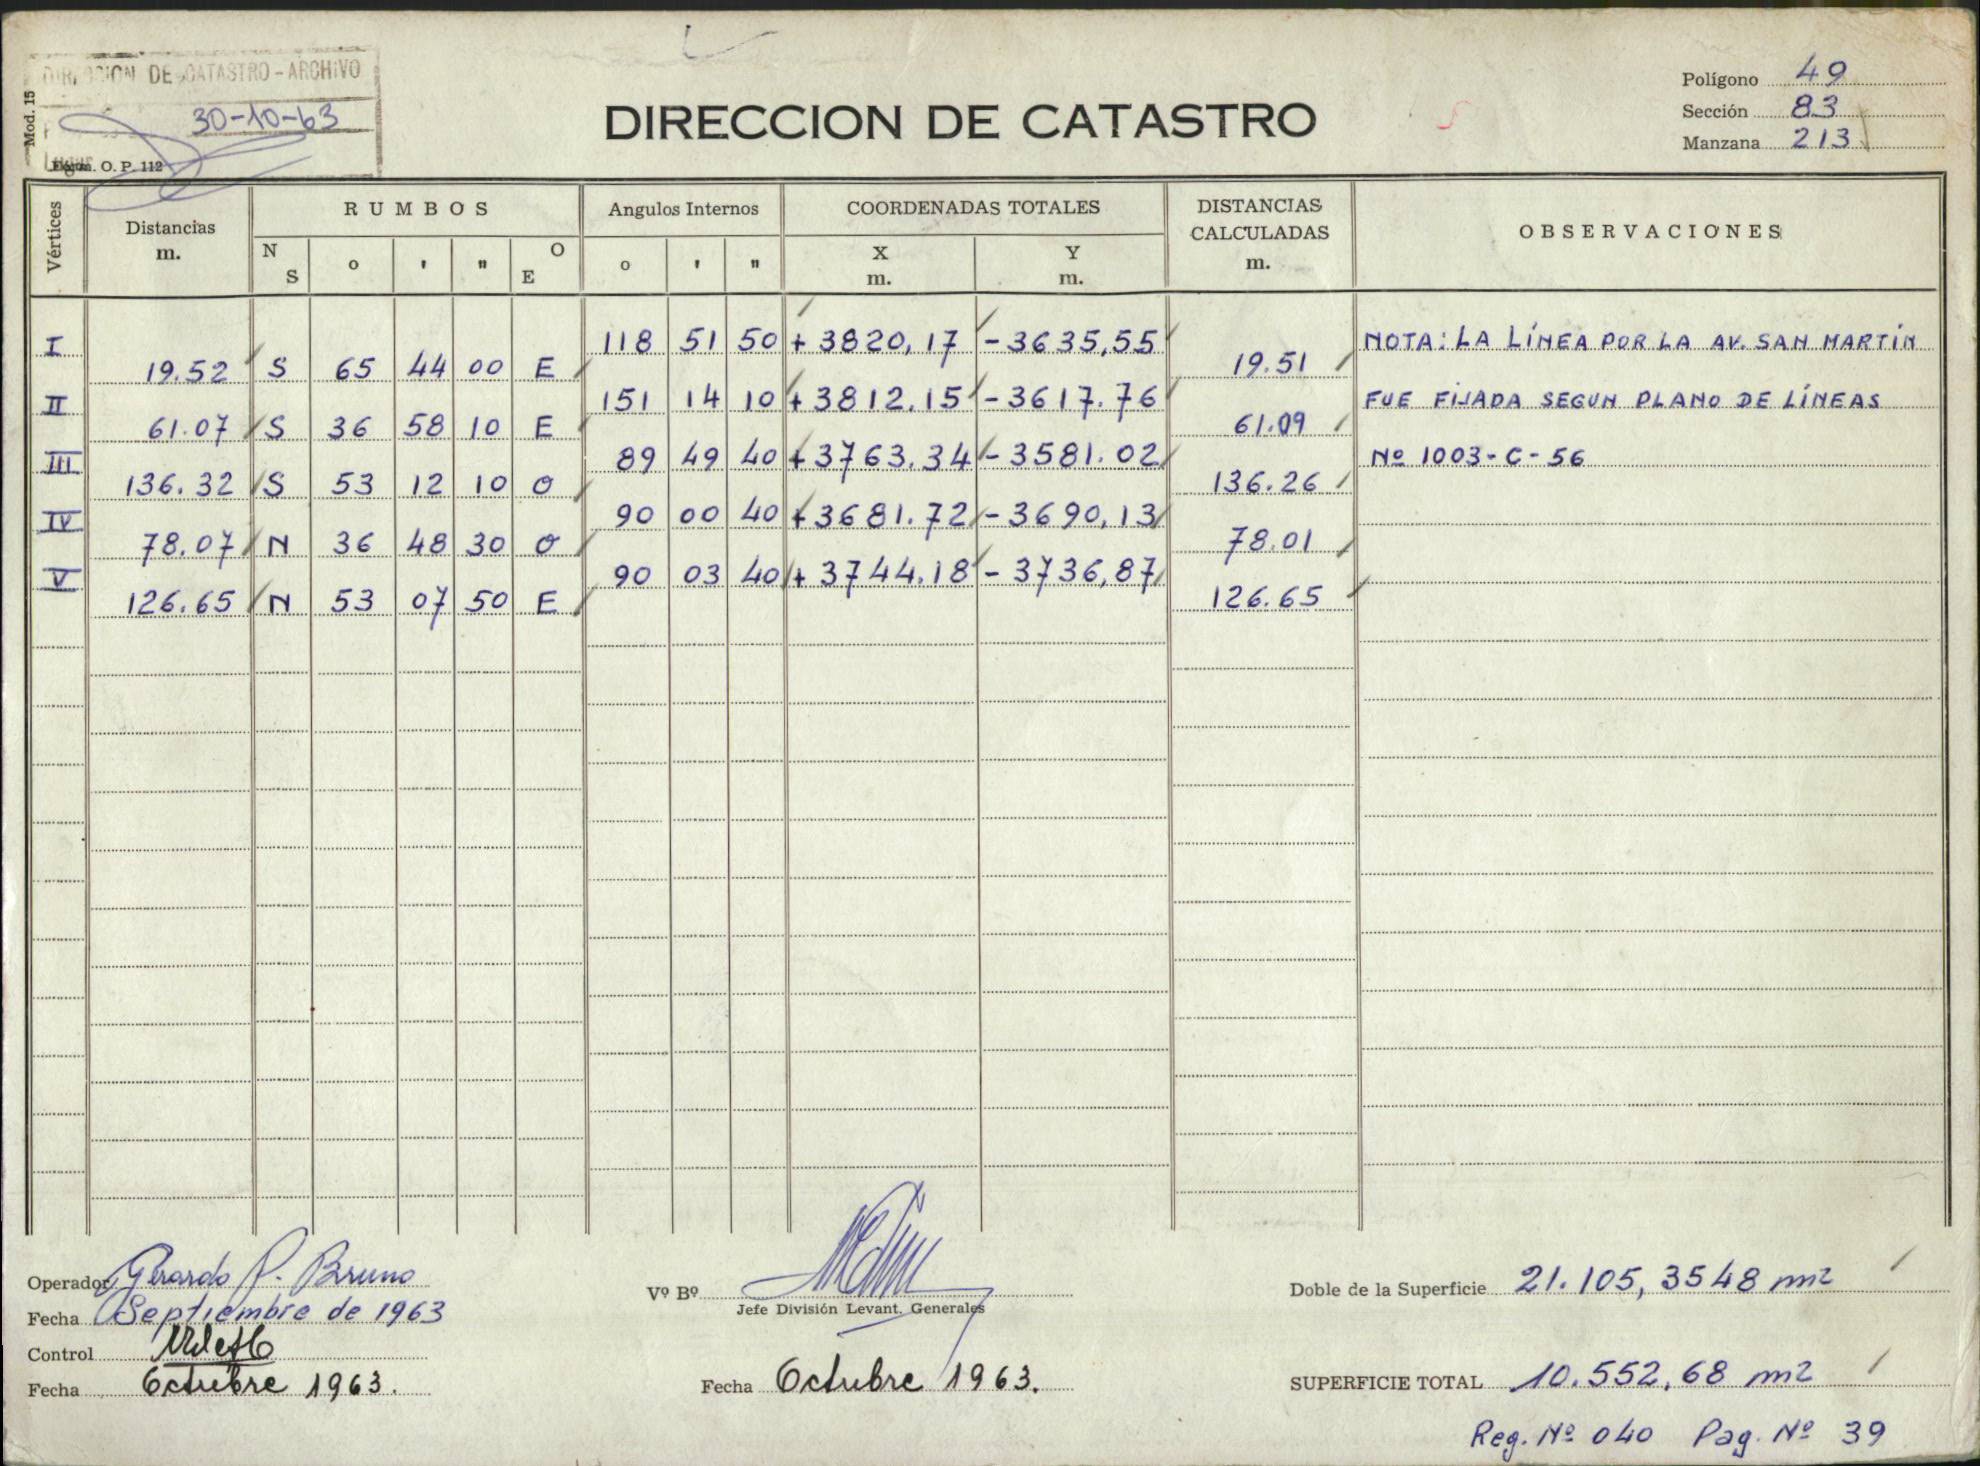 DIRECCION DE CATASTRO - ARCHIVO
30-10-63
Mod. 15
O. P. 112
DIRECCION DE CATASTRO
Polígono 49
Sección 83
Manzana 213
Vértices
Distancias m.
RUMBOS
N S o ' " O E
Angulos Internos
o ' "
COORDENADAS TOTALES
X m. Y m.
DISTANCIAS CALCULADAS m.
OBSERVACIONES
I 118 51 50 + 3820,17 - 3635,55 NOTA: LA LÍNEA POR LA AV. SAN MARTÍN
19.52 S 65 44 00 E 19.51
II 151 14 10 + 3812.15 - 3617.76 FUE FIJADA SEGUN PLANO DE LÍNEAS
61.07 S 36 58 10 E 61.09
III 89 49 40 + 3763.34 - 3581.02 Nº 1003-C-56
136.32 S 53 12 10 O 136.26
IV 90 00 40 + 3681.72 - 3690,13
78.07 N 36 48 30 O 78.01
V 90 03 40 + 3744.18 - 3736,87
126.65 N 53 07 50 E 126.65
Operador Gerardo P. Bruno
Fecha Septiembre de 1963
Control
Fecha Octubre 1963.
Vº Bº
Jefe División Levant. Generales
Fecha Octubre 1963.
Doble de la Superficie 21.105,3548 m2
SUPERFICIE TOTAL 10.552,68 m2
Reg. Nº 040 Pag. Nº 39